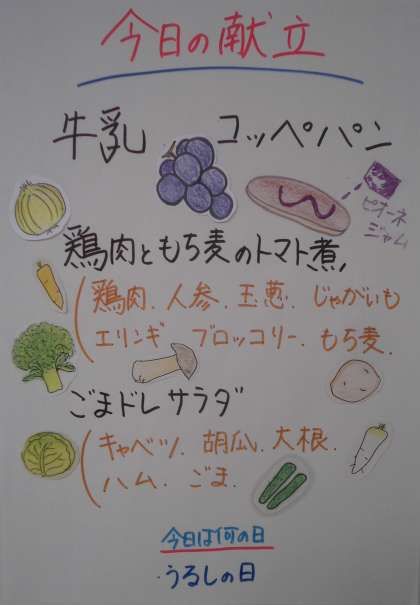 今日の献立
牛乳 コッペパン
ピオーネ
ジャム
鶏肉ともち麦のトマト煮
(鶏肉.人参.玉葱.じゃがいも
エリンギ ブロッコリー.もち麦.
ごまドレサラダ
(キャベツ.胡瓜.大根.
ハム.ごま.
今日は何の日
・うるしの日